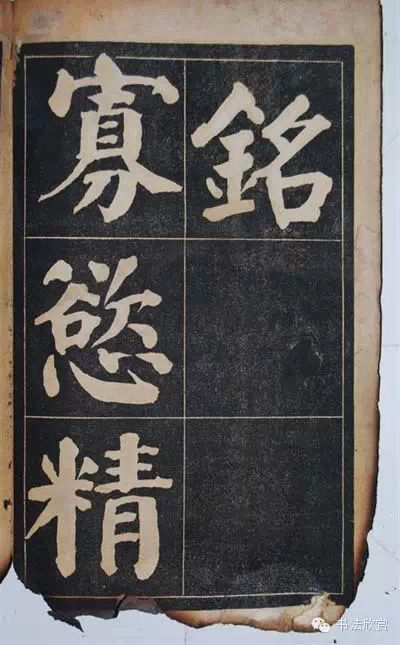 銘
寡慾精
书法欣赏